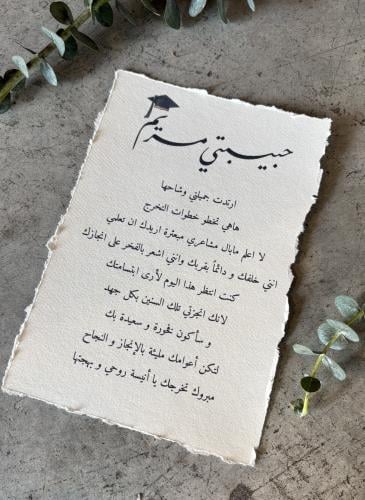 حبيبتي مريم
ارتدت جميلتي وشاحها
هاهي تخطو خطوات التخرج
لا اعلم مابال مشاعري مبعثرة اريدك ان تعلمي
انني خلفك و دائماً بقربك وانني اشعر بالفخر على انجازك
كنت انتظر هذا اليوم لأرى إبتسامتك
لانك انجزتي تلك السنين بكل جهد
و سأكون فخورة و سعيدة بك
لتكن أعوامك مليئة بالإنجاز و النجاح
مبروك تخرجك يا أنيسة روحي و بهجتها